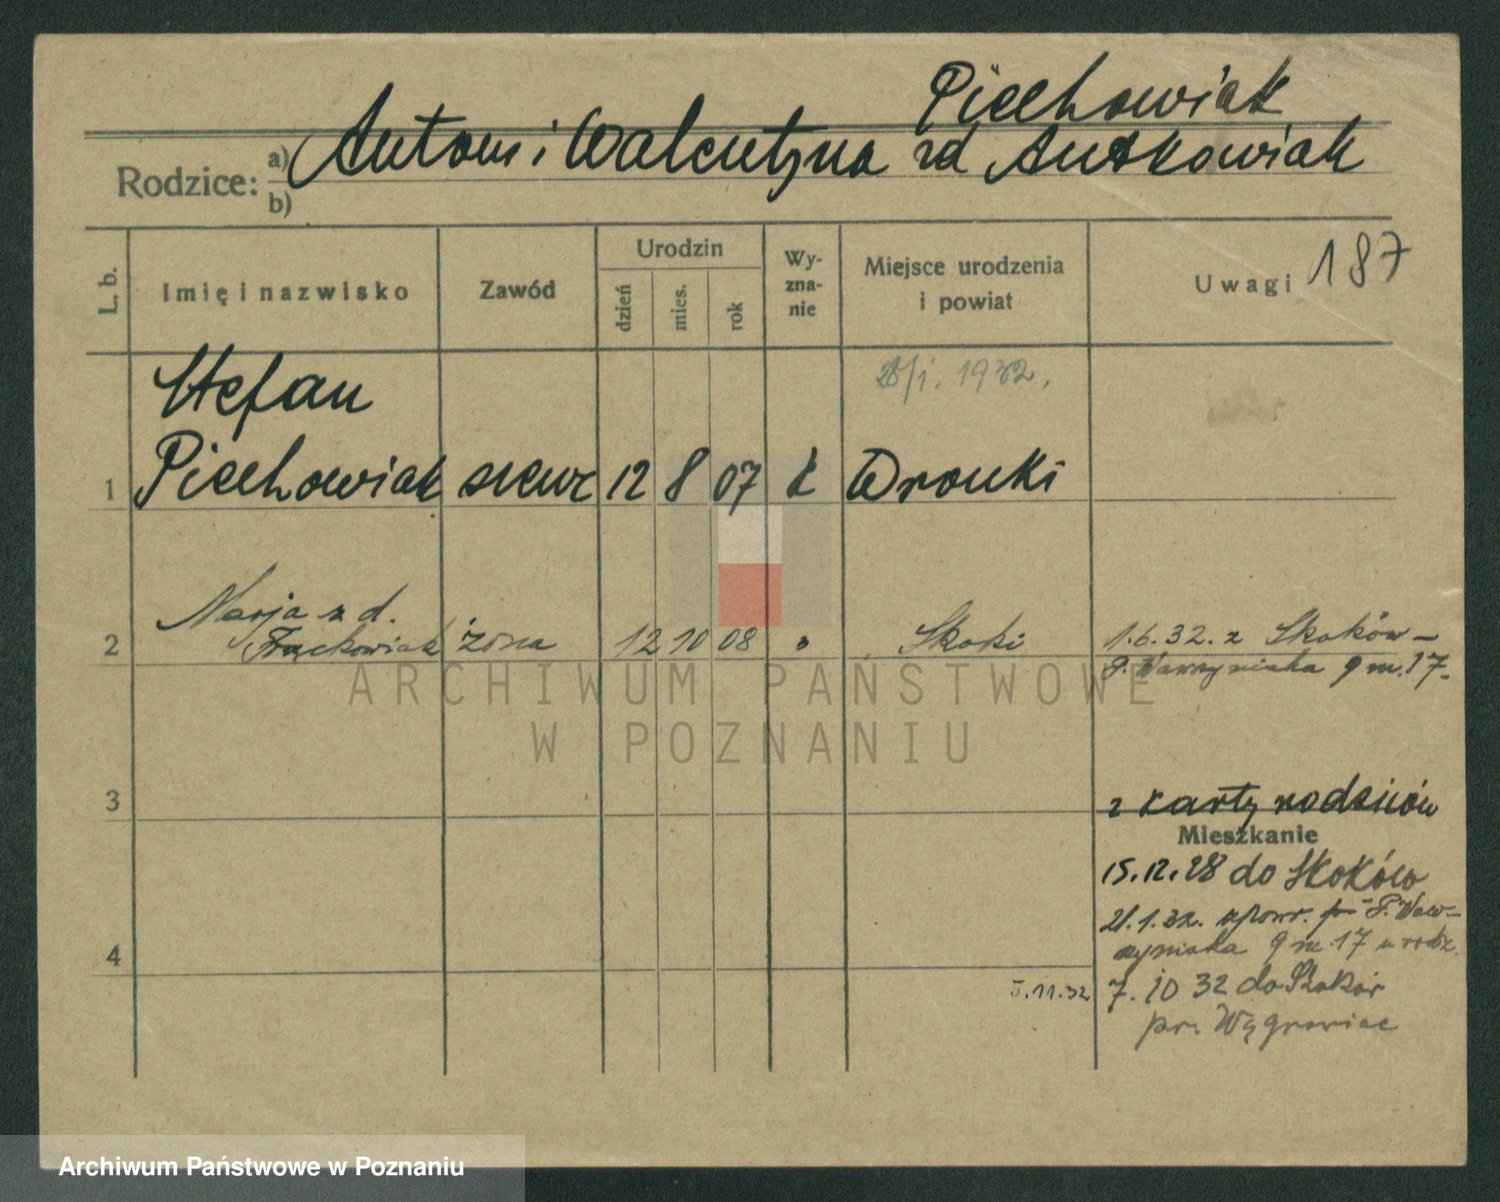 Piechowiak
Rodzice: a) Antoni i Walentyna zd Antkowiak
b)
L. b. Imię i nazwisko Zawód Urodzin dzień mies. rok Wy-zna-nie Miejsce urodzenia i powiat Uwagi 187
28/1. 1932.
Stefan
1 Piechowiak szewc 12 8 07 k Wronki
Marja z d.
2 Frąckowiak żona 12 10 08 " Skoki 1.6.32. z Skoków –
P. Wawrzyniaka 9 m. 17.
ARCHIWUM PAŃSTWOWE
W POZNANIU
3 z karty rodziców
Mieszkanie
15.12.28 do Skoków
21.1.32. zpowr. P. Waw-
4 rzyniaka 9 m. 17 u rodz.
5.11.32 7. 10 32 do Skoków
pw. Wągrowiec
Archiwum Państwowe w Poznaniu